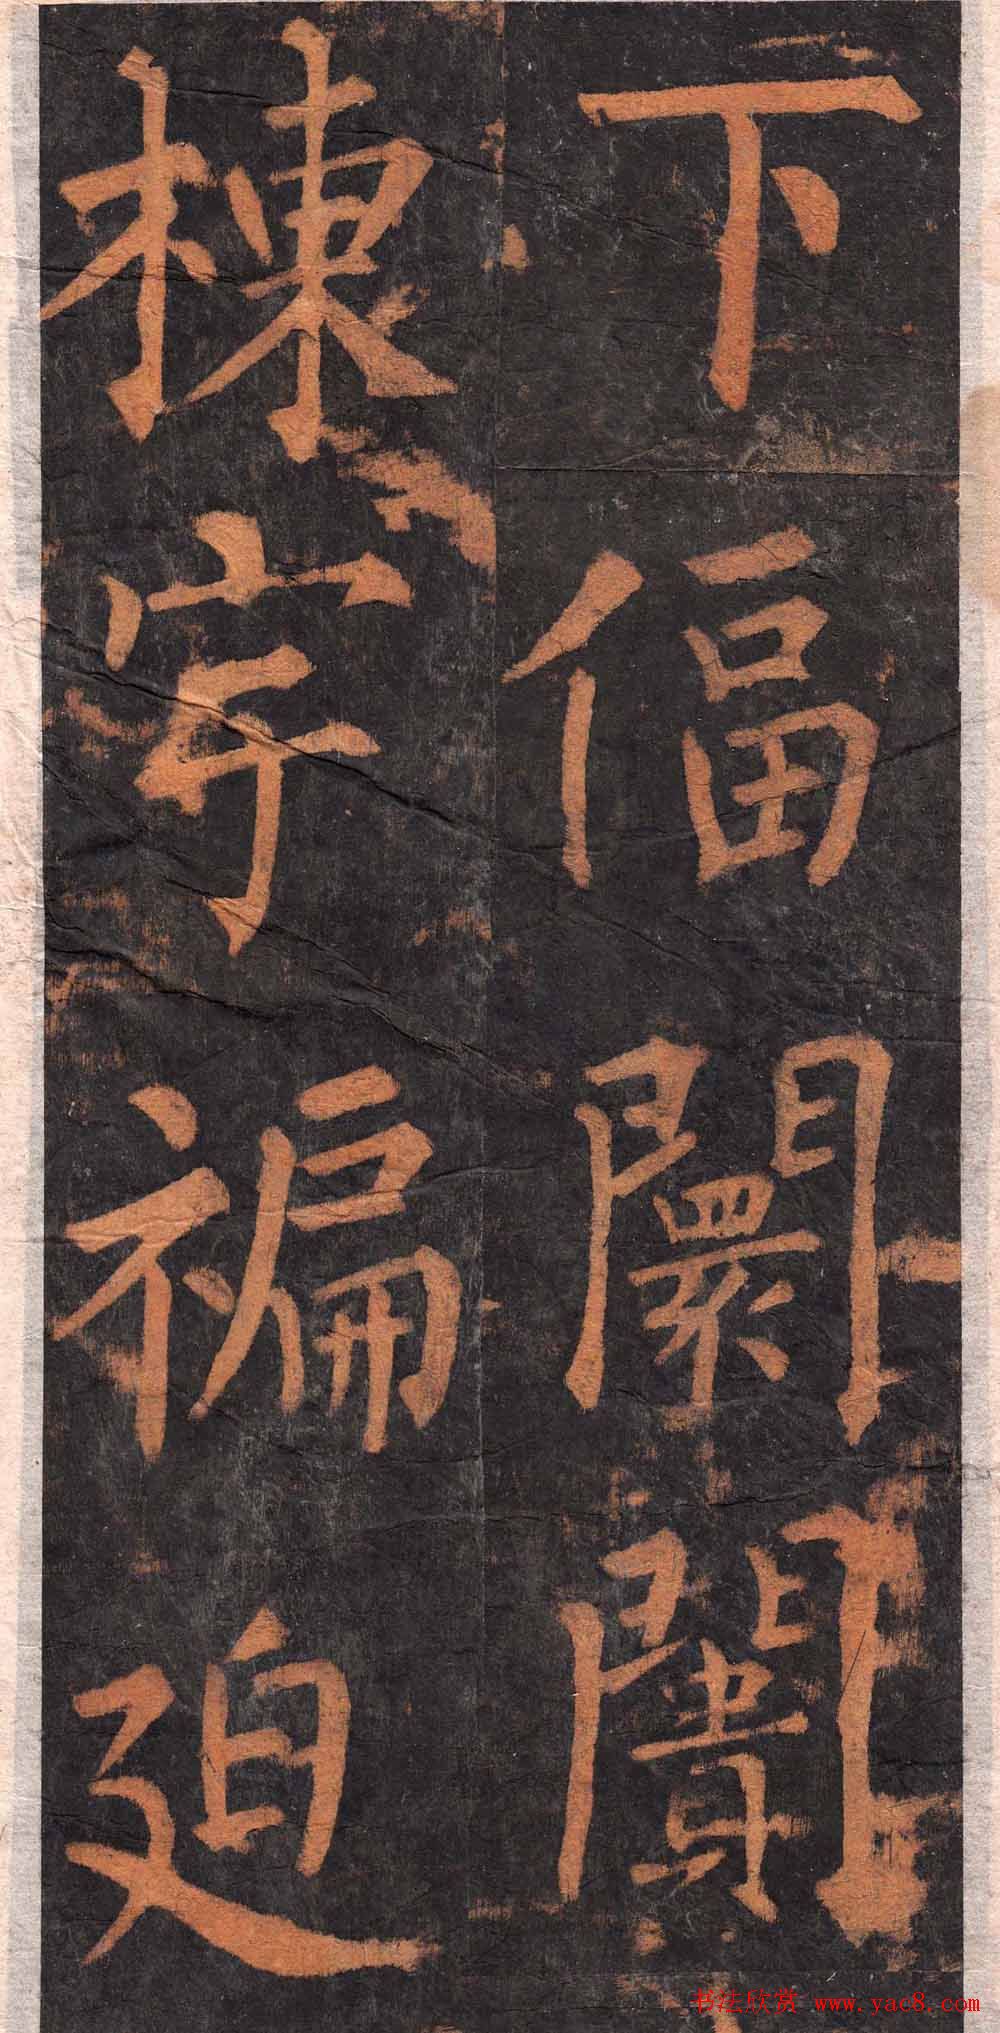 下偪闤闠
棟宇褊廹
书法欣赏 www.yac8.com